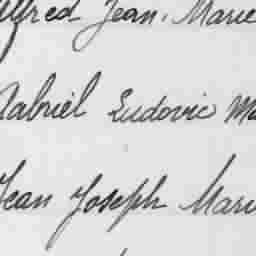 Alfred Jean, Marie
Gabriel Ludovic Ma
Jean Joseph Marie